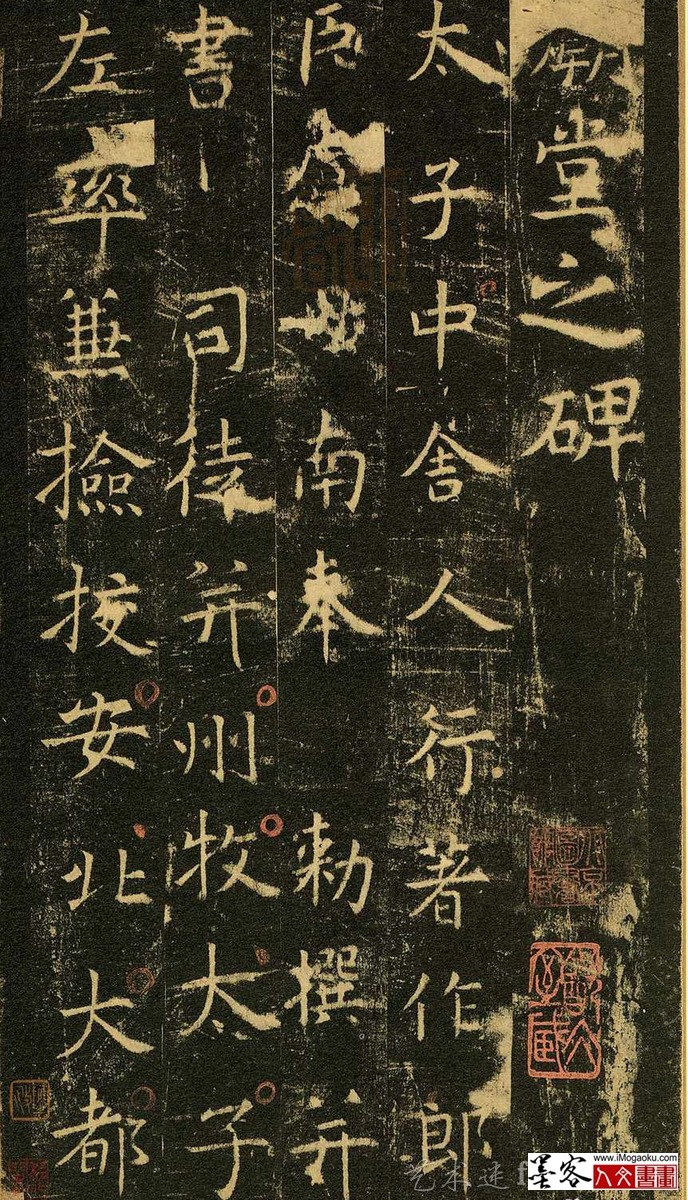 堂之碑
太子中舍人行著作郎
臣虞世南奉 勅撰并
書 司徒并州牧太子
左率兼撿挍安北大都
墨客
www.iMogaoku.com
人文書畫